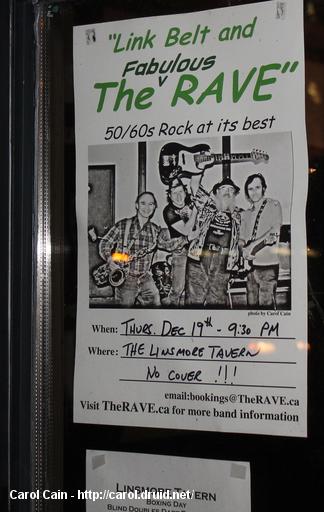 "Link Belt and
Fabulous
The RAVE"
50/60s Rock at its best
photo by Carol Cain
When: THURS. DEC 19th - 9:30 PM
Where: THE LINSMORE TAVERN
NO COVER !!!
email:bookings@TheRAVE.ca
Visit TheRAVE.ca for more band information
LINSMORE TAVERN
BOXING DAY
Carol Cain - http://carol.druid.net/